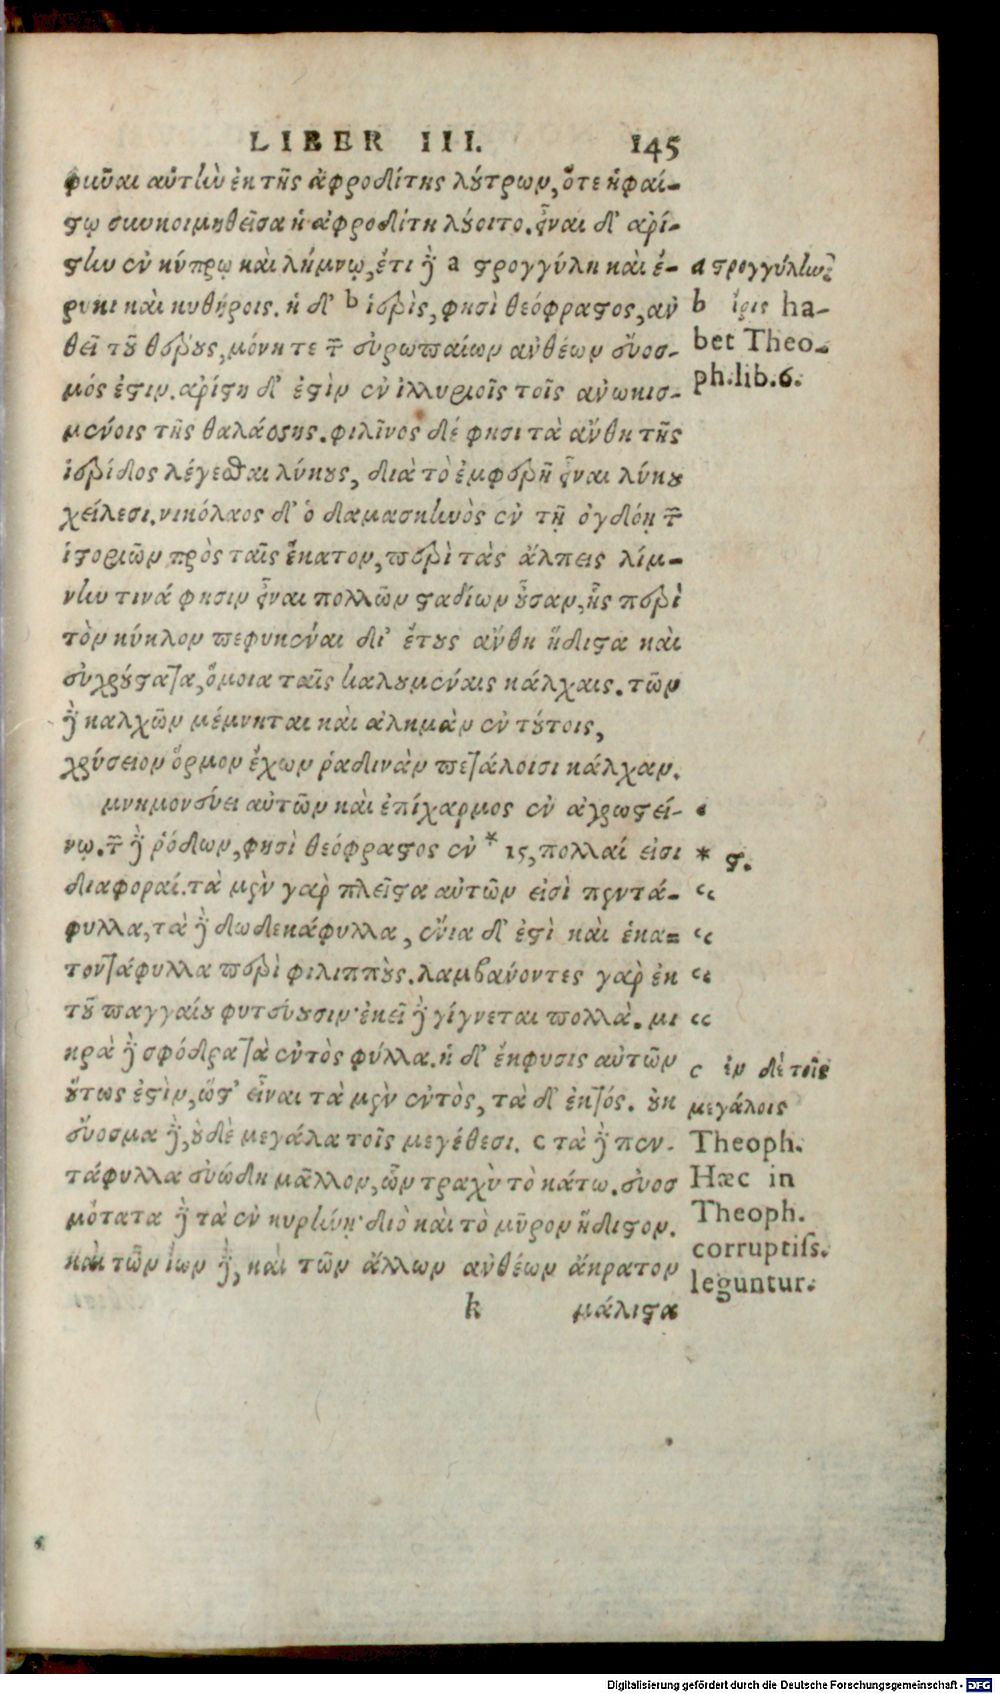 LIBER III. 145
φυῦναι αὐτὴν ἐκ τῆς ἀφροδίτης λούτρων, ὅτε ἡφαί-
στῳ συγκοιμηθεῖσα ἡ ἀφροδίτη λούοιτο. εἶναι δ' ἀρί-
στην ἐν κύπρῳ καὶ λήμνῳ, ἔτι δὲ a στρογγύλη καὶ ἐ-
ρυκι καὶ κυθήροις. ἡ δ' b ἱερὶς, φησὶ θεόφραστος, ἀν
θεῖ τοῦ θέρους, μόνη τε τῶν εὐρωπαίων ἀνθέων εὔοσ-
μός ἐστιν. ἀρίστη δ' ἐστὶν ἐν ἰλλυριοῖς τοῖς ἀνωκισ-
μένοις τῆς θαλάσσης. φιλῖνος δέ φησι τὰ ἄνθη τῆς
ἱερίδος λέγεσθαι λύκους, διὰ τὸ ἐμφερῆ εἶναι λύκου
χείλεσι. νικόλαος δ' ὁ δαμασκηνὸς ἐν τῇ ὀγδόῃ τῶν
ἱστοριῶν πρὸς ταῖς ἕκατον, περὶ τὰς ἄλπεις λίμ-
νην τινά φησιν εἶναι πολλῶν σταδίων οὖσαν, ἧς περὶ
τὸν κύκλον πεφυκέναι δι' ἔτους ἄνθη ἥδιστα καὶ
εὐχρούστατα, ὅμοια ταῖς καλουμέναις κάλχαις. τῶν
δὲ καλχῶν μέμνηται καὶ ἀλκμὰν ἐν τούτοις,
χρύσειον ὅρμον ἔχων ῥαδινὰν πετάλοισι κάλχαν.
μνημονεύει αὐτῶν καὶ ἐπίχαρμος ἐν ἀγρωστεί-
νῳ. τῶν δὲ ῥόδων, φησὶ θεόφραστος ἐν * 15, πολλαί εἰσι
διαφοραί. τὰ μὲν γὰρ πλεῖστα αὐτῶν εἰσὶ πεντά-
φυλλα, τὰ δὲ δωδεκάφυλλα, ἔνια δ' ἐστὶ καὶ ἑκα=
τοντάφυλλα περὶ φιλιππούς. λαμβάνοντες γὰρ ἐκ
τοῦ παγγαίου φυτεύουσιν· ἐκεῖ δὲ γίγνεται πολλὰ. μι
κρὰ δὲ σφόδρα τὰ ἐντὸς φύλλα. ἡ δ' ἔκφυσις αὐτῶν
οὕτως ἐστὶν, ὥστ' εἶναι τὰ μὲν ἐντὸς, τὰ δ' ἐκτός. οὐκ
εὔοσμα δὲ, οὐδὲ μεγάλα τοῖς μεγέθεσι. c τὰ δὲ πεν-
τάφυλλα εὐώδη μᾶλλον, ὧν τραχὺ τὸ κάτω. εὐοσ
μότατα δὲ τὰ ἐν κυρήνῃ· διὸ καὶ τὸ μῦρον ἥδιστον.
καὶ τῶν ἴων δὲ, καὶ τῶν ἄλλων ἀνθέων ἄκρατον
k μάλιστα
a στρογγύλην
b ἶρις ha-
bet Theo-
ph.lib.6.
* ϛ.
c ἐν δὲ τοῖς
μεγάλοις
Theoph.
Hæc in
Theoph.
corruptiss.
leguntur.
Digitalisierung gefördert durch die Deutsche Forschungsgemeinschaft - DFG